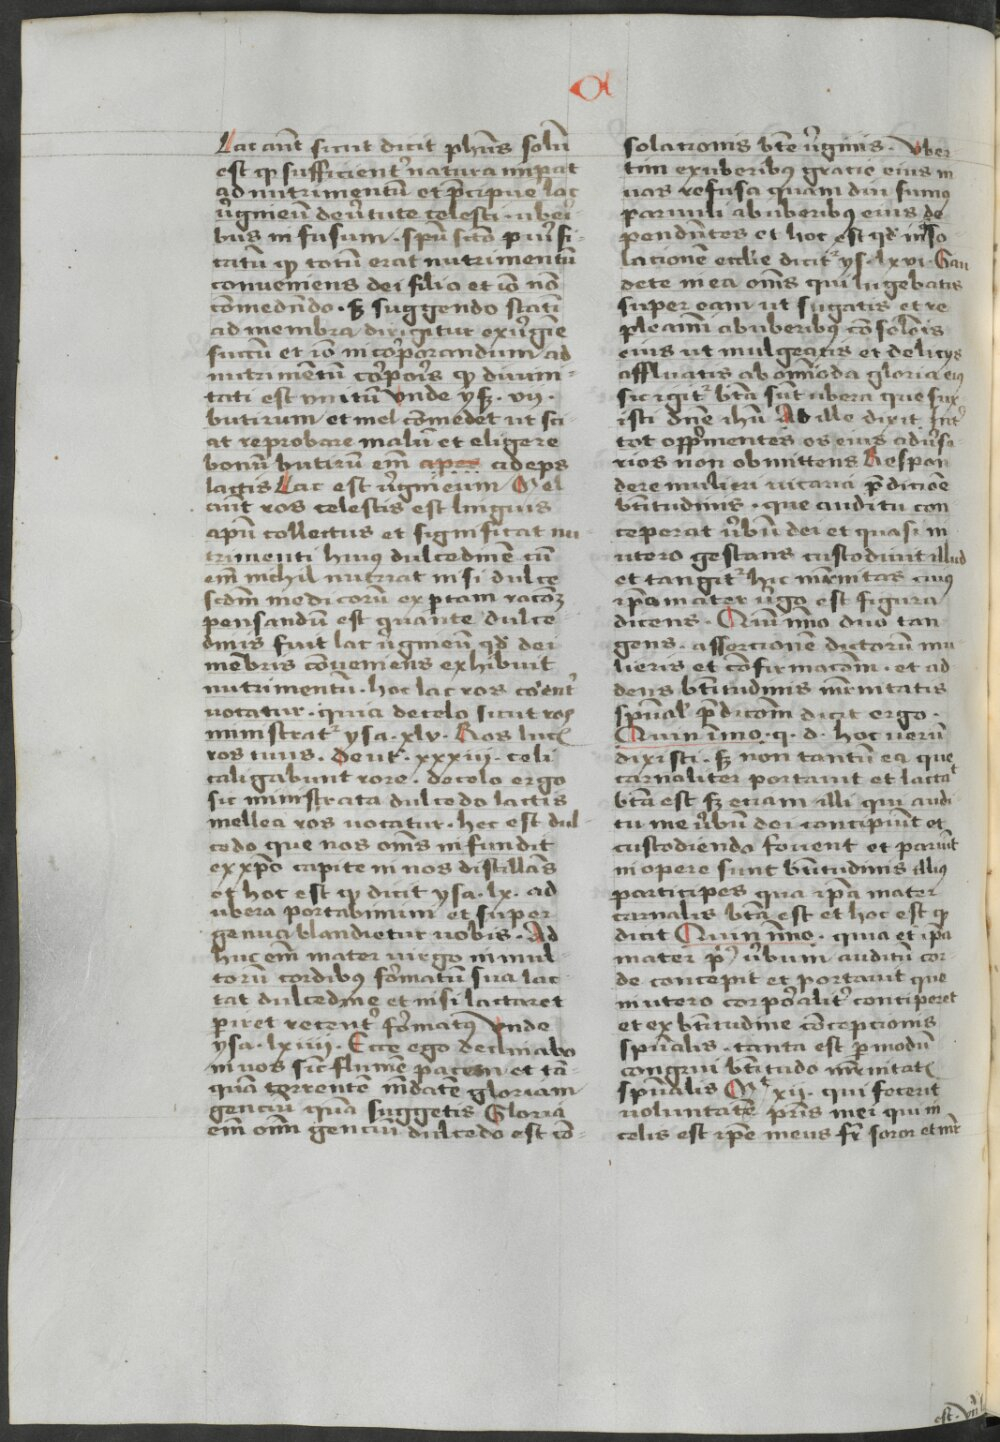 α
Lac aut̄ sicut dicit phūs solū
est qͥ sufficient̾ natura mīpat
ad nutrimentū et p̄cipue lac
v̾gineū de v̾tute celesti ube͛i
bus infusum · spū sctō p
catū qͥ totū erat nutrimentū
conveniens dei filio et iō nō
cōmedēdo · sꝫ suggendo statī
ad membra dirigitur ex v̾gīe
succū et iō incorporandum ad
nutrimentū cor̾pois qͥ divini
tati est unitū Unde ysꝫ · vij ·
butirum et mel cōmedet ut sci
at reprobare malū et eligere
bonū butirū em̄ apes adeps
lactis Lac est v̾gineum Mel
aut̄ ros celestis est linguis
apū collectus et significat nu
trimenti huiꝰ dulcedinē cū
em̄ nichil nutriat nisi dulce
scdm̄ medicorū ex
pensandū est quante dulce
dinis fuit lac v̾gineū qd̾ dei
mēbris cōveniens exhibuit
nutrimentū · hoc lac ros
vocatur · quia de celo sicut ros
ministrat̾ ysa · xlv · Ros lucꝭ
ros tuus · Deut̾ · xxxiii · celi
caligabunt rore · de celo ergo
sic ministrata dulcedo lactis
mellea ros vocatur · hec est dul
cedo que nos om̄s infundit
ex xp̄o capite in nos distillās
et hoc est qͥ dicit ysa · lx · ad
ubera portabimini et super
genua blandietur vobis · Ad
huc em̄ mater virgo in mul
torū cordibꝰ fōrmatū sua lac
tat dulcedine et nisi lactaret
periret recent̾ formatꝰ Unde
ysa · lxviii · Ecce ego declinabo
in vos sic̄ flumē pacem et tā
quā torrentē inūdātē gloriam
genciū quā suggetis Gloria
em̄ om̄i genciū dulcedo est cō
solationis bt̄e v̾ginis · Uber
tim ex uberibus gracie eius in
nos refusa quam diu sumꝰ
parvuli ab uberibꝰ eius de
pendētes et hoc est qd̾
lacionē ecclie dicit̾ ys · lxvi · Gau
dete in ea om̄s qui lugebatis
super eam ut sugatis et re
pleamī ab uberibꝰ cōsolōis
eius ut mulgeatis et delicijs
affluatis ab om̄oda gloria eiꝰ
sic igit̾ bt̄a sūt ubera que sux
isti dn̄e ih̄u At ille dixit Int̾
tot opp̄mentes os eius adv̾sa
rios non obmittens Respon
dere mulieri p̄dicōē
bt̄itudinis · que auditu con
ceperat v̾bū dei et quasi in
utero gestans custodivit illud
et tangit̾ hic mr̄nitas cuiꝰ
ip̄a mater v̾go est figura
dicens · Quinīmo duo tan
gens · assercionē dictorū mu
lieris et cōfirmacōm · et ad
dens bt̄itudinis mr̄nitatis
spūalꝭ p̄dicōm dicit ergo ·
Quin imo · q · d · hoc verū
dixisti · sꝫ non tantū ea que
carnaliter portavit et lactat
bt̄a est sꝫ eciam illi qui audi
tu me v̾bū dei concipiūt et
custodiendo fovent et pariūt
in opere sunt bt̄itudinis illiꝰ
participes qua ip̄a mater
carnalis bt̄a est et hoc est qͥ
dicit Quin īmo · quia et ip̄a
mater v̾bum auditū cor
de concepit et portavit que
in utero corp̾alit̾ conciperet
et ex bt̄itudine cōcepcionis
spūalis · tanta est p̄ modū
congrui bt̄itudo mr̄nitatꝭ
spūalis Mt̾ xii · qui fecerit
voluntatē pr̄is mei qui in
celis est ip̄e meus fr̄ soror et mr̄